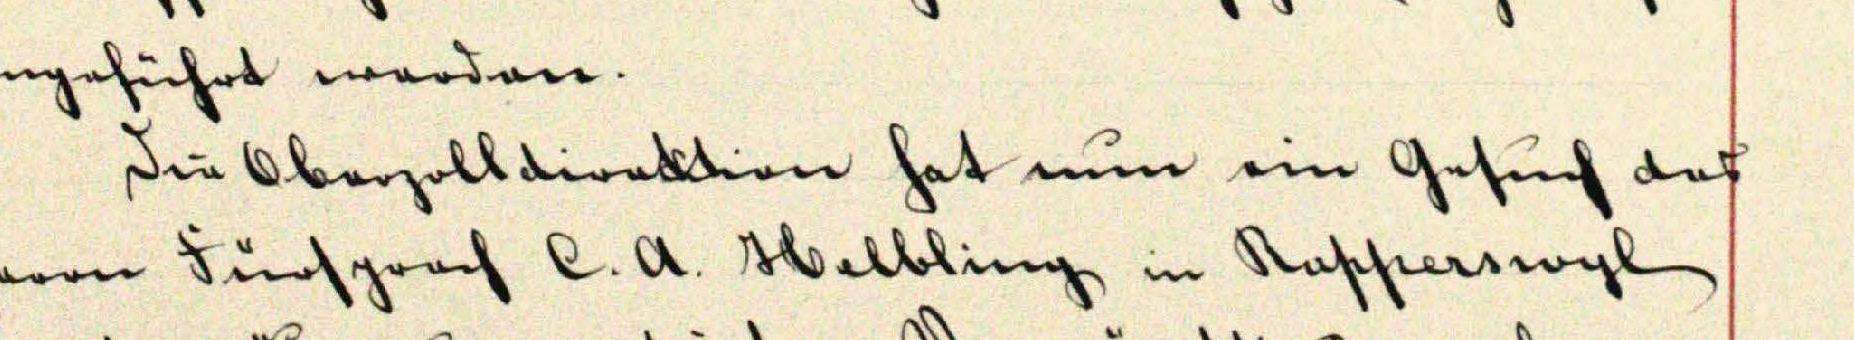 ngeführt werden.
Die Oberzolldirektion hat nun ein Gesuch des
errn Fürsprech C. A. Helbling in Rapperswyl